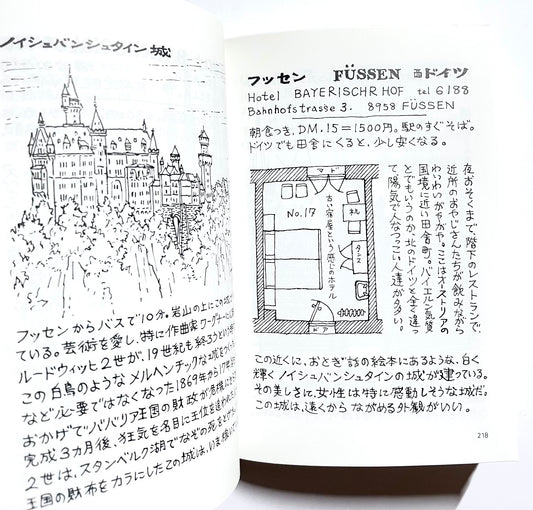 ノイシュバンシュタイン城
フッセンからバスで10分。岩山の上にこの
ている。芸術を愛し、特に作曲家ワーグナー
ルードウィッヒ2世が、19世紀も終ろうという
この白鳥のようなメルヘンチックな城を
など必要ではなくなった1869年から17年
おかげでババリア王国の財政が危機に
完成3カ月後、狂気を名目に王位を追
2世は、スタンベルク湖でなぞの死を
王国の財布をカラにしたこの城は、いま
フッセン FÜSSEN 西ドイツ
Hotel BAYERISCHR HOF tel 6188
Bahnhofstrasse 3. 8958 FÜSSEN
朝食つき、DM.15=1500円。駅のすぐそば。
ドイツでも田舎にくると、少し安くなる。
マド
No.17
机
タンス
古い宿屋という感じのホテル
ドア
夜おそくまで階下のレストランで、
近所のおやじさんたちが飲みながら
わいわいがやがや。ここはオーストリアの
国境に近い田舎町。バイエルン気質
とでもいうのか、北のドイツと全く違っ
て、陽気で人なつっこい人達が多い。
この近くに、おとぎ話の絵本にあるような、白く
輝くノイシュバンシュタインの城が建っている。
その美しさに、女性は特に感動しそうな城だ。
この城は、遠くからながめる外観がいい。
218